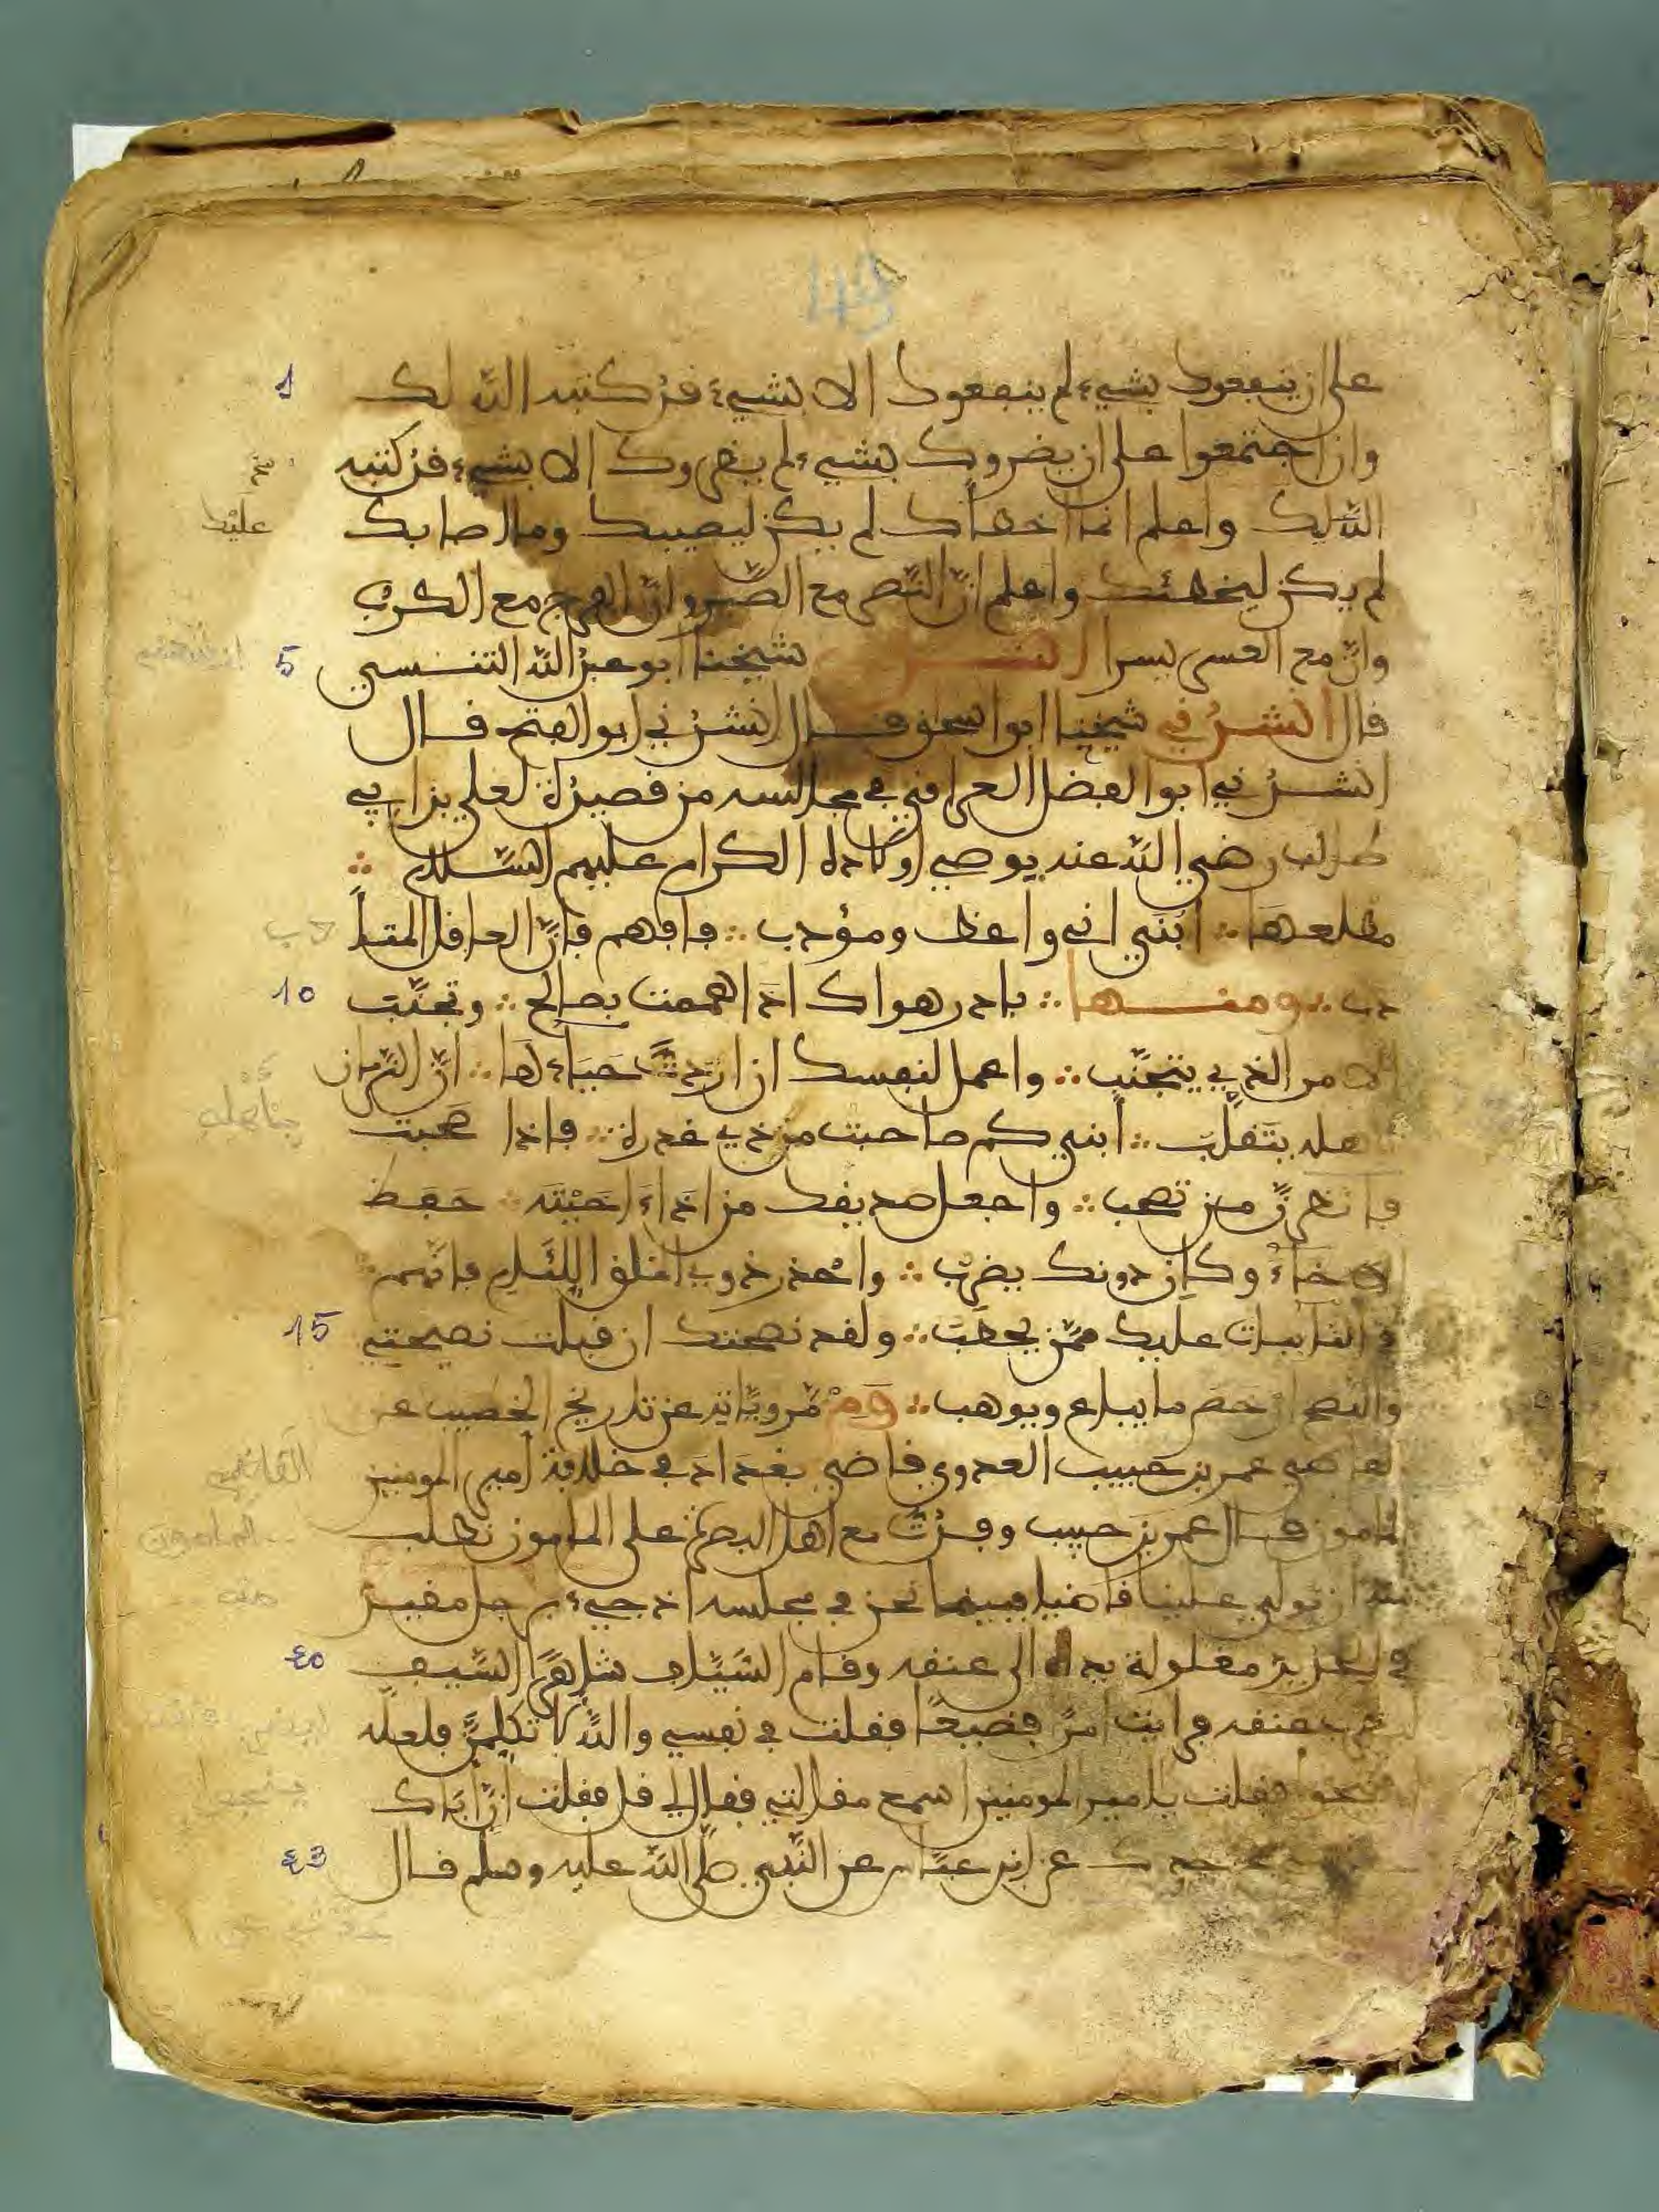 على ان ينفعوك بشيء لم ينفعوك الا بشيء قد كتبه الله لك
وان اجتمعوا على ان يضروك بشيء لم يضروك الا بشيء قد كتبه
الله لك واعلم انما اخطأك لم يكن ليصيبك وما اصابك
لم يكن ليخطئك واعلم انّ النّصر مع الصّبر وانّ الفرج مع الكرب
وانّ مع العسر يسرا شيخنا ابو عبد الله التنسي
قال انشدني شيخنا ابو اسحق قال انشدني ابو الفتح قال
انشدني ابو الفضل العراقي في مجالسه من قصيدة لعلي بن ابي
طالب رضي الله عنه يوصي اولاده الكرام عليهم السّلام
مطلعها ابنيّ اني واعظ ومؤدب فافهم فانّ العاقل المتأ
دب ومنها بادر هواك اذا هممت بصالح وتجنّب
الامر الذي يتجنّب واعمل لنفسك ان اردت حباءها انّ الزّمان
باهله يتقلّب أبنيّ كم صاحبت من ذي غدرة فاذا صحبت
فانظرنّ من تصحب واجعل صديقك من اذا اخيته حفظ
الاخاء وكان دونك يضرب واحذر ذوي الملق اللئام فانّهم
في النائبات عليك ممّن يحطب ولقد نصحتك ان قبلت نصيحتي
والنصح ارخص ما يباع ويوهب ومن مروياته عن تاريخ الخطيب عن
القاضي عمر بن حبيب العدوي قاضي بغداد في خلافة امير المومنين
المامون قال عمر بن حبيب وفدت مع اهل البصرة على المامون نطلب
منه ان يولي علينا قاضيا فبينما نحن في مجلسه اذ جيء برجل مقيد
في الحديد مغلولة يداه الى عنقه وقام السّيّاف شاهرا السّيف
عنقه فرايت امرا فضيحا فقلت في نفسي والله لا تكلمنّ فلعله
فقلت يا امير المومنين اسمع مقالتي فقال لي قل فقلت انّ اباك
عن ابن عبّاس عن النّبي صلّى الله عليه وسلّم قال